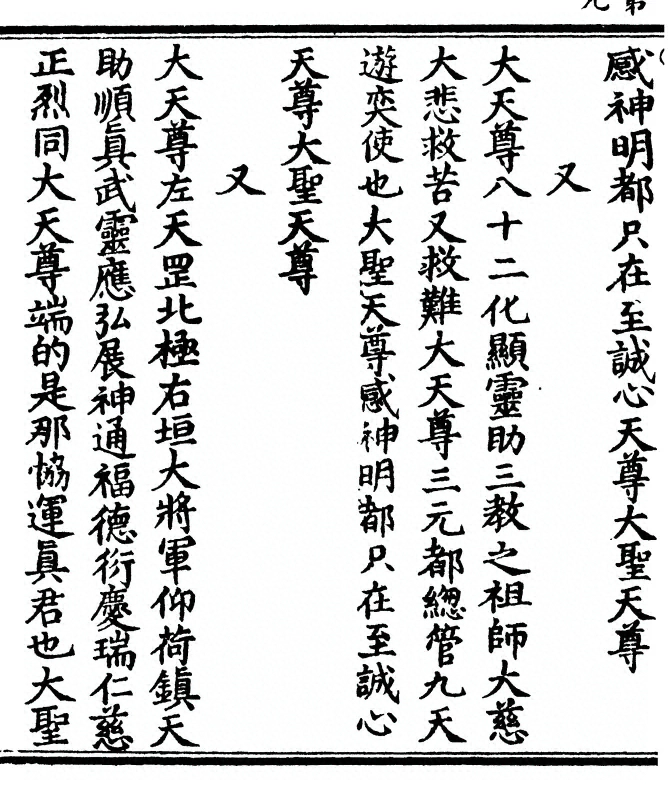 感神明都只在至誠心天尊大聖天尊
又
大天尊八十二化顯靈助三教之祖師大慈
大悲救苦又救難大天尊三元都緫管九天
遊奕使也大聖天尊感神明都只在至誠心
天尊大聖天尊
又
大天尊左天罡北極右垣大將軍仰荷鎮天
助順眞武靈應弘展神通福德衍慶瑞仁慈
正烈同大天尊端的是那恊運眞君也大聖